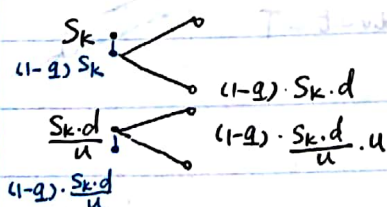 S_k
(1-q) S_k
(1-q) · S_k · d
S_k · d / u
(1-q) · S_k · d / u · u
(1-q) · S_k · d / u